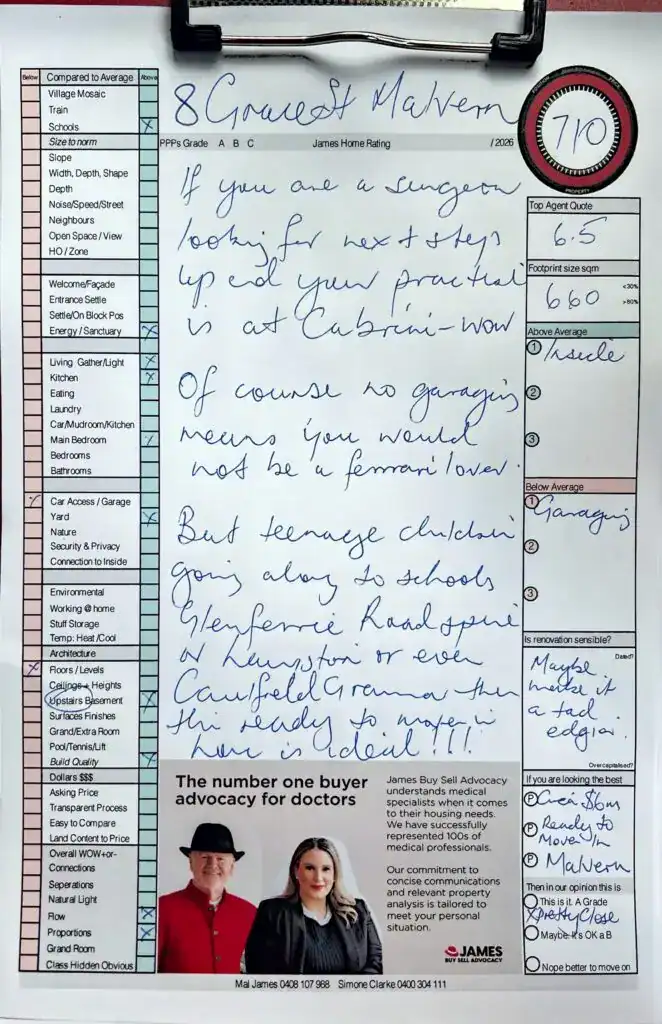 Below Compared to Average Above
Village Mosaic
Train
Schools X
Size to norm
Slope
Width, Depth, Shape
Depth
Noise/Speed/Street
Neighbours
Open Space / View
HO / Zone
Welcome/Façade
Entrance Settle
Settle/On Block Pos
Energy / Sanctuary X
Living Gather/Light X
Kitchen X
Eating
Laundry
Car/Mudroom/Kitchen
Main Bedroom
Bedrooms
Bathrooms
X Car Access / Garage
Yard X
Nature
Security & Privacy
Connection to Inside
Environmental
Working @ home
Stuff Storage
Temp: Heat /Cool
Architecture
X Floors / Levels
Ceilings + Heights
Upstairs Basement X
Surfaces Finishes
Grand/Extra Room
Pool/Tennis/Lift
Build Quality X
Dollars $$$
Asking Price
Transparent Process
Easy to Compare
Land Content to Price
Overall WOW+or-
Connections
Seperations
Natural Light
Flow X
Proportions X
Grand Room
Class Hidden Obvious
8 Grace St Malvern
PPPs Grade A B C James Home Rating / 2026
If you are a surgeon
looking for next steps
up and your practical
is at Cabrini-wow
Of course no garaging
means you would
not be a ferrari lover.
But teenage children
going along to schools
Glenferrie Road spine
or
or even
Caulfield Grammar then
this ready to move in
home is ideal!!!
710
PROPERTY
Top Agent Quote
6.5
Footprint size sqm
660
<30%
>80%
Above Average
1 Inside
2
3
Below Average
1 Garaging
2
3
Is renovation sensible?
Dated?
Maybe
make it
a tad
edgier.
Overcapitalised?
If you are looking the best
P Circa $6m
P Ready to
Move In
P Malvern
Then in our opinion this is
This is it. A Grade
X Pretty Close
Maybe. It's OK a B
Nope better to move on
The number one buyer
advocacy for doctors
James Buy Sell Advocacy
understands medical
specialists when it comes
to their housing needs.
We have successfully
represented 100s of
medical professionals.
Our commitment to
concise communications
and relevant property
analysis is tailored to
meet your personal
situation.
JAMES
BUY SELL ADVOCACY
Mal James 0408 107 988 Simone Clarke 0400 304 111